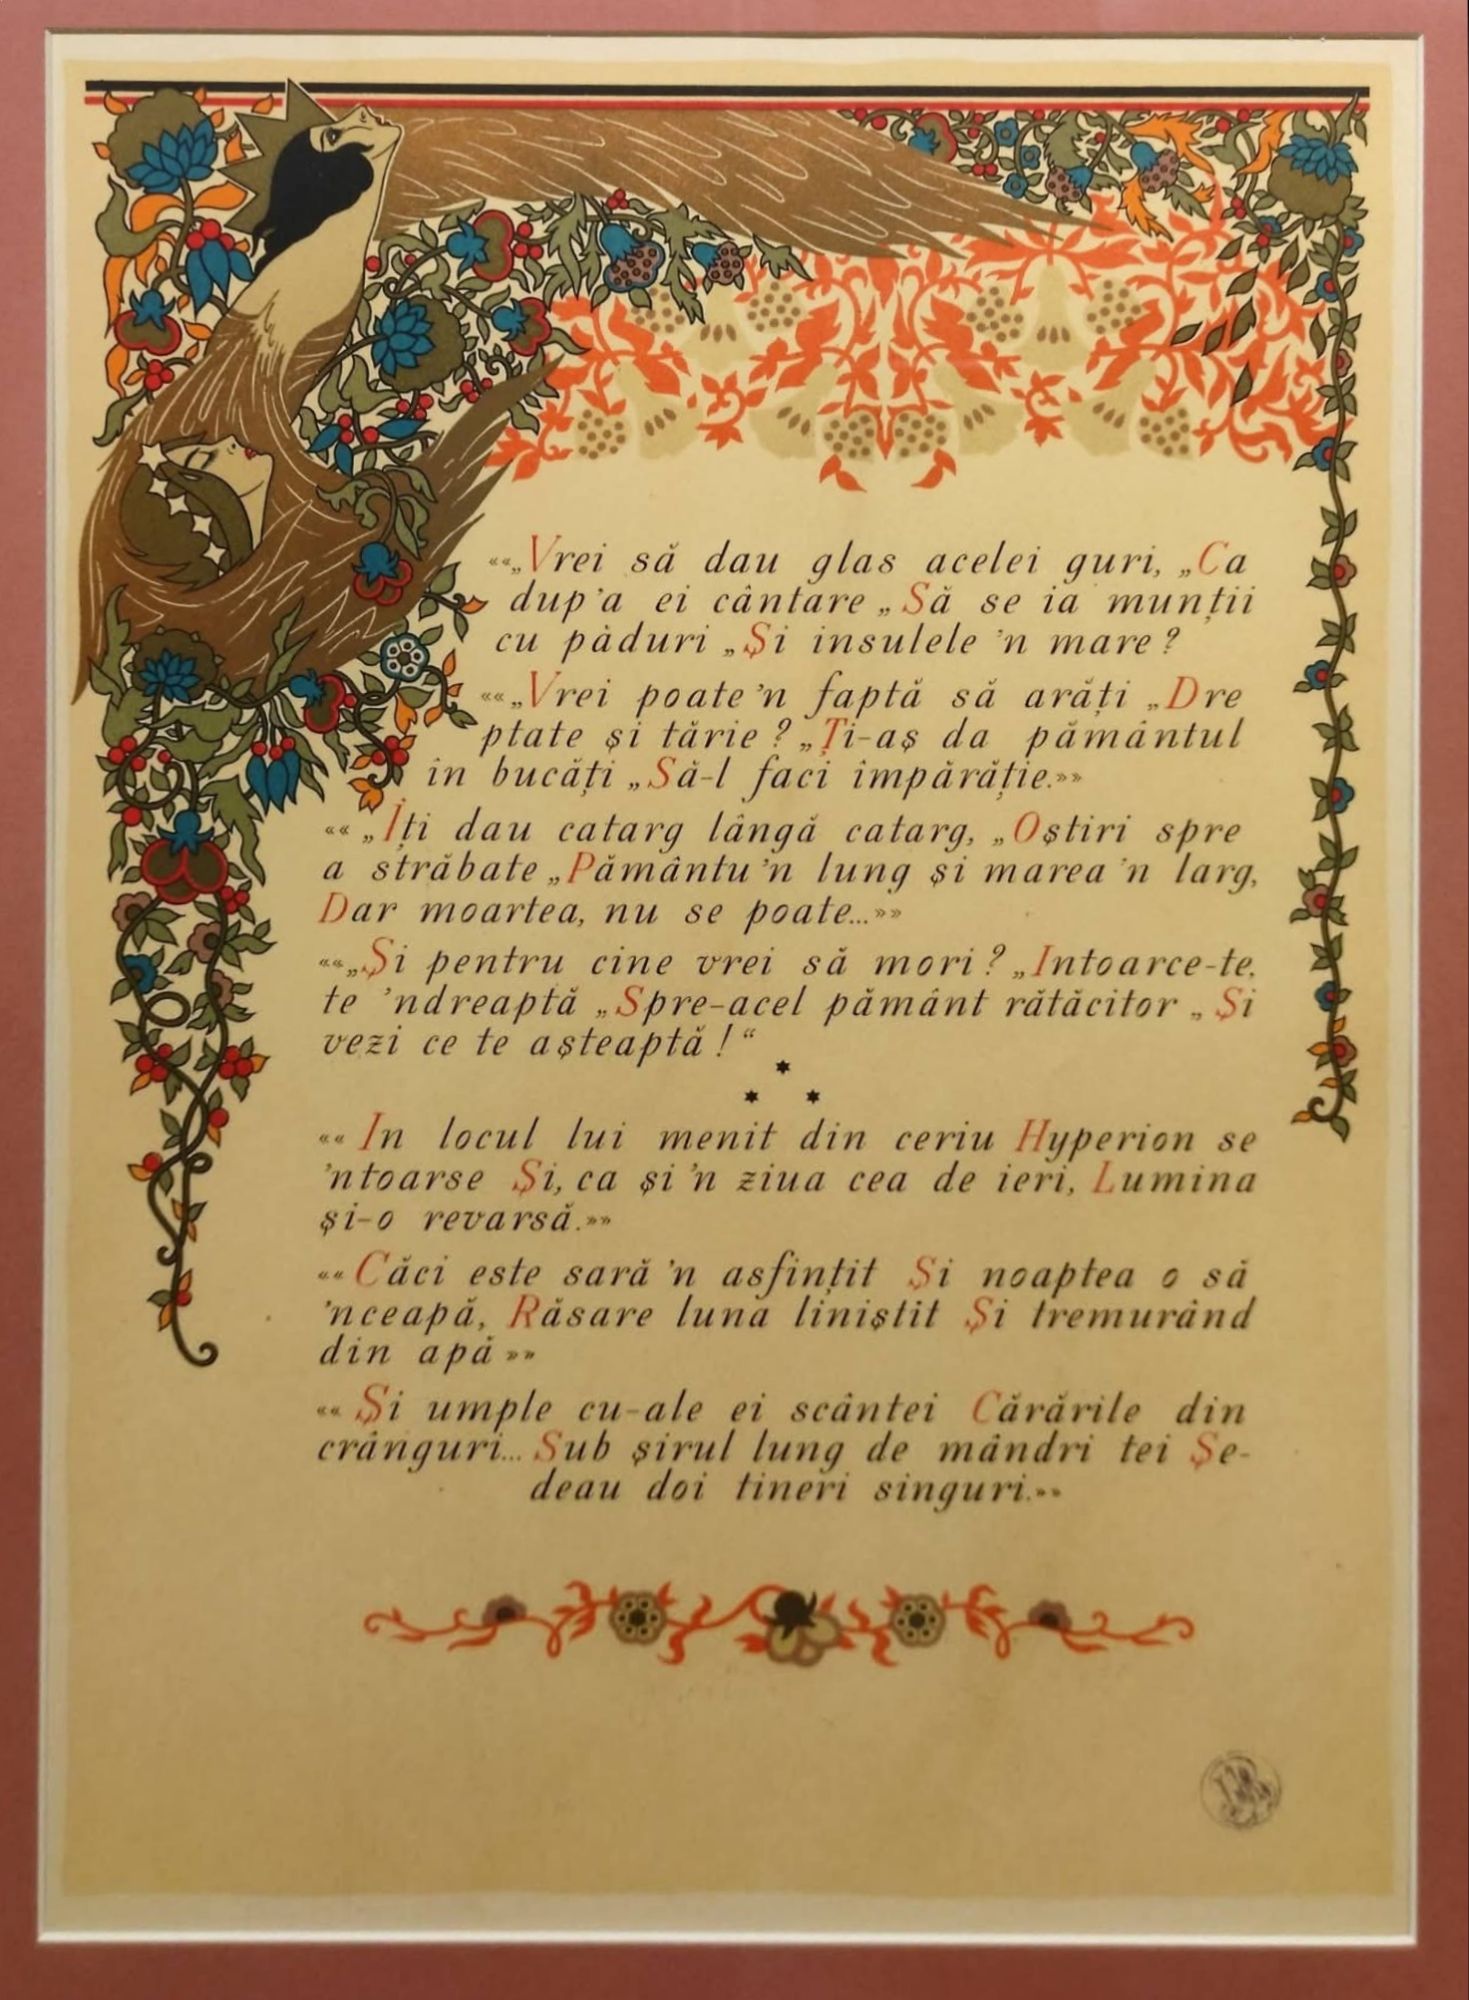 ««„Vrei să dau glas acelei guri, „Ca
dup'a ei cântare „Să se ia munții
cu păduri „Și insulele 'n mare?
««„Vrei poate 'n faptă să arăți „Dre
ptate și tărie? „Ți-aș da pământul
în bucăți „Să-l faci împărăție.»»
«« „Îți dau catarg lângă catarg, „Oștiri spre
a străbate „Pământu 'n lung și marea 'n larg,
Dar moartea, nu se poate...»»
««„Și pentru cine vrei să mori? „Intoarce-te,
te 'ndreaptă „Spre-acel pământ rătăcitor „Și
vezi ce te așteaptă!“
«« In locul lui menit din ceriu Hyperion se
'ntoarse Și, ca și 'n ziua cea de ieri, Lumina
și-o revarsă.»»
«« Căci este sară 'n asfințit Și noaptea o să
'nceapă, Răsare luna liniștit Și tremurând
din apă »»
«« Și umple cu-ale ei scântei Cărările din
crânguri... Sub șirul lung de mândri tei Șe-
deau doi tineri singuri.»»